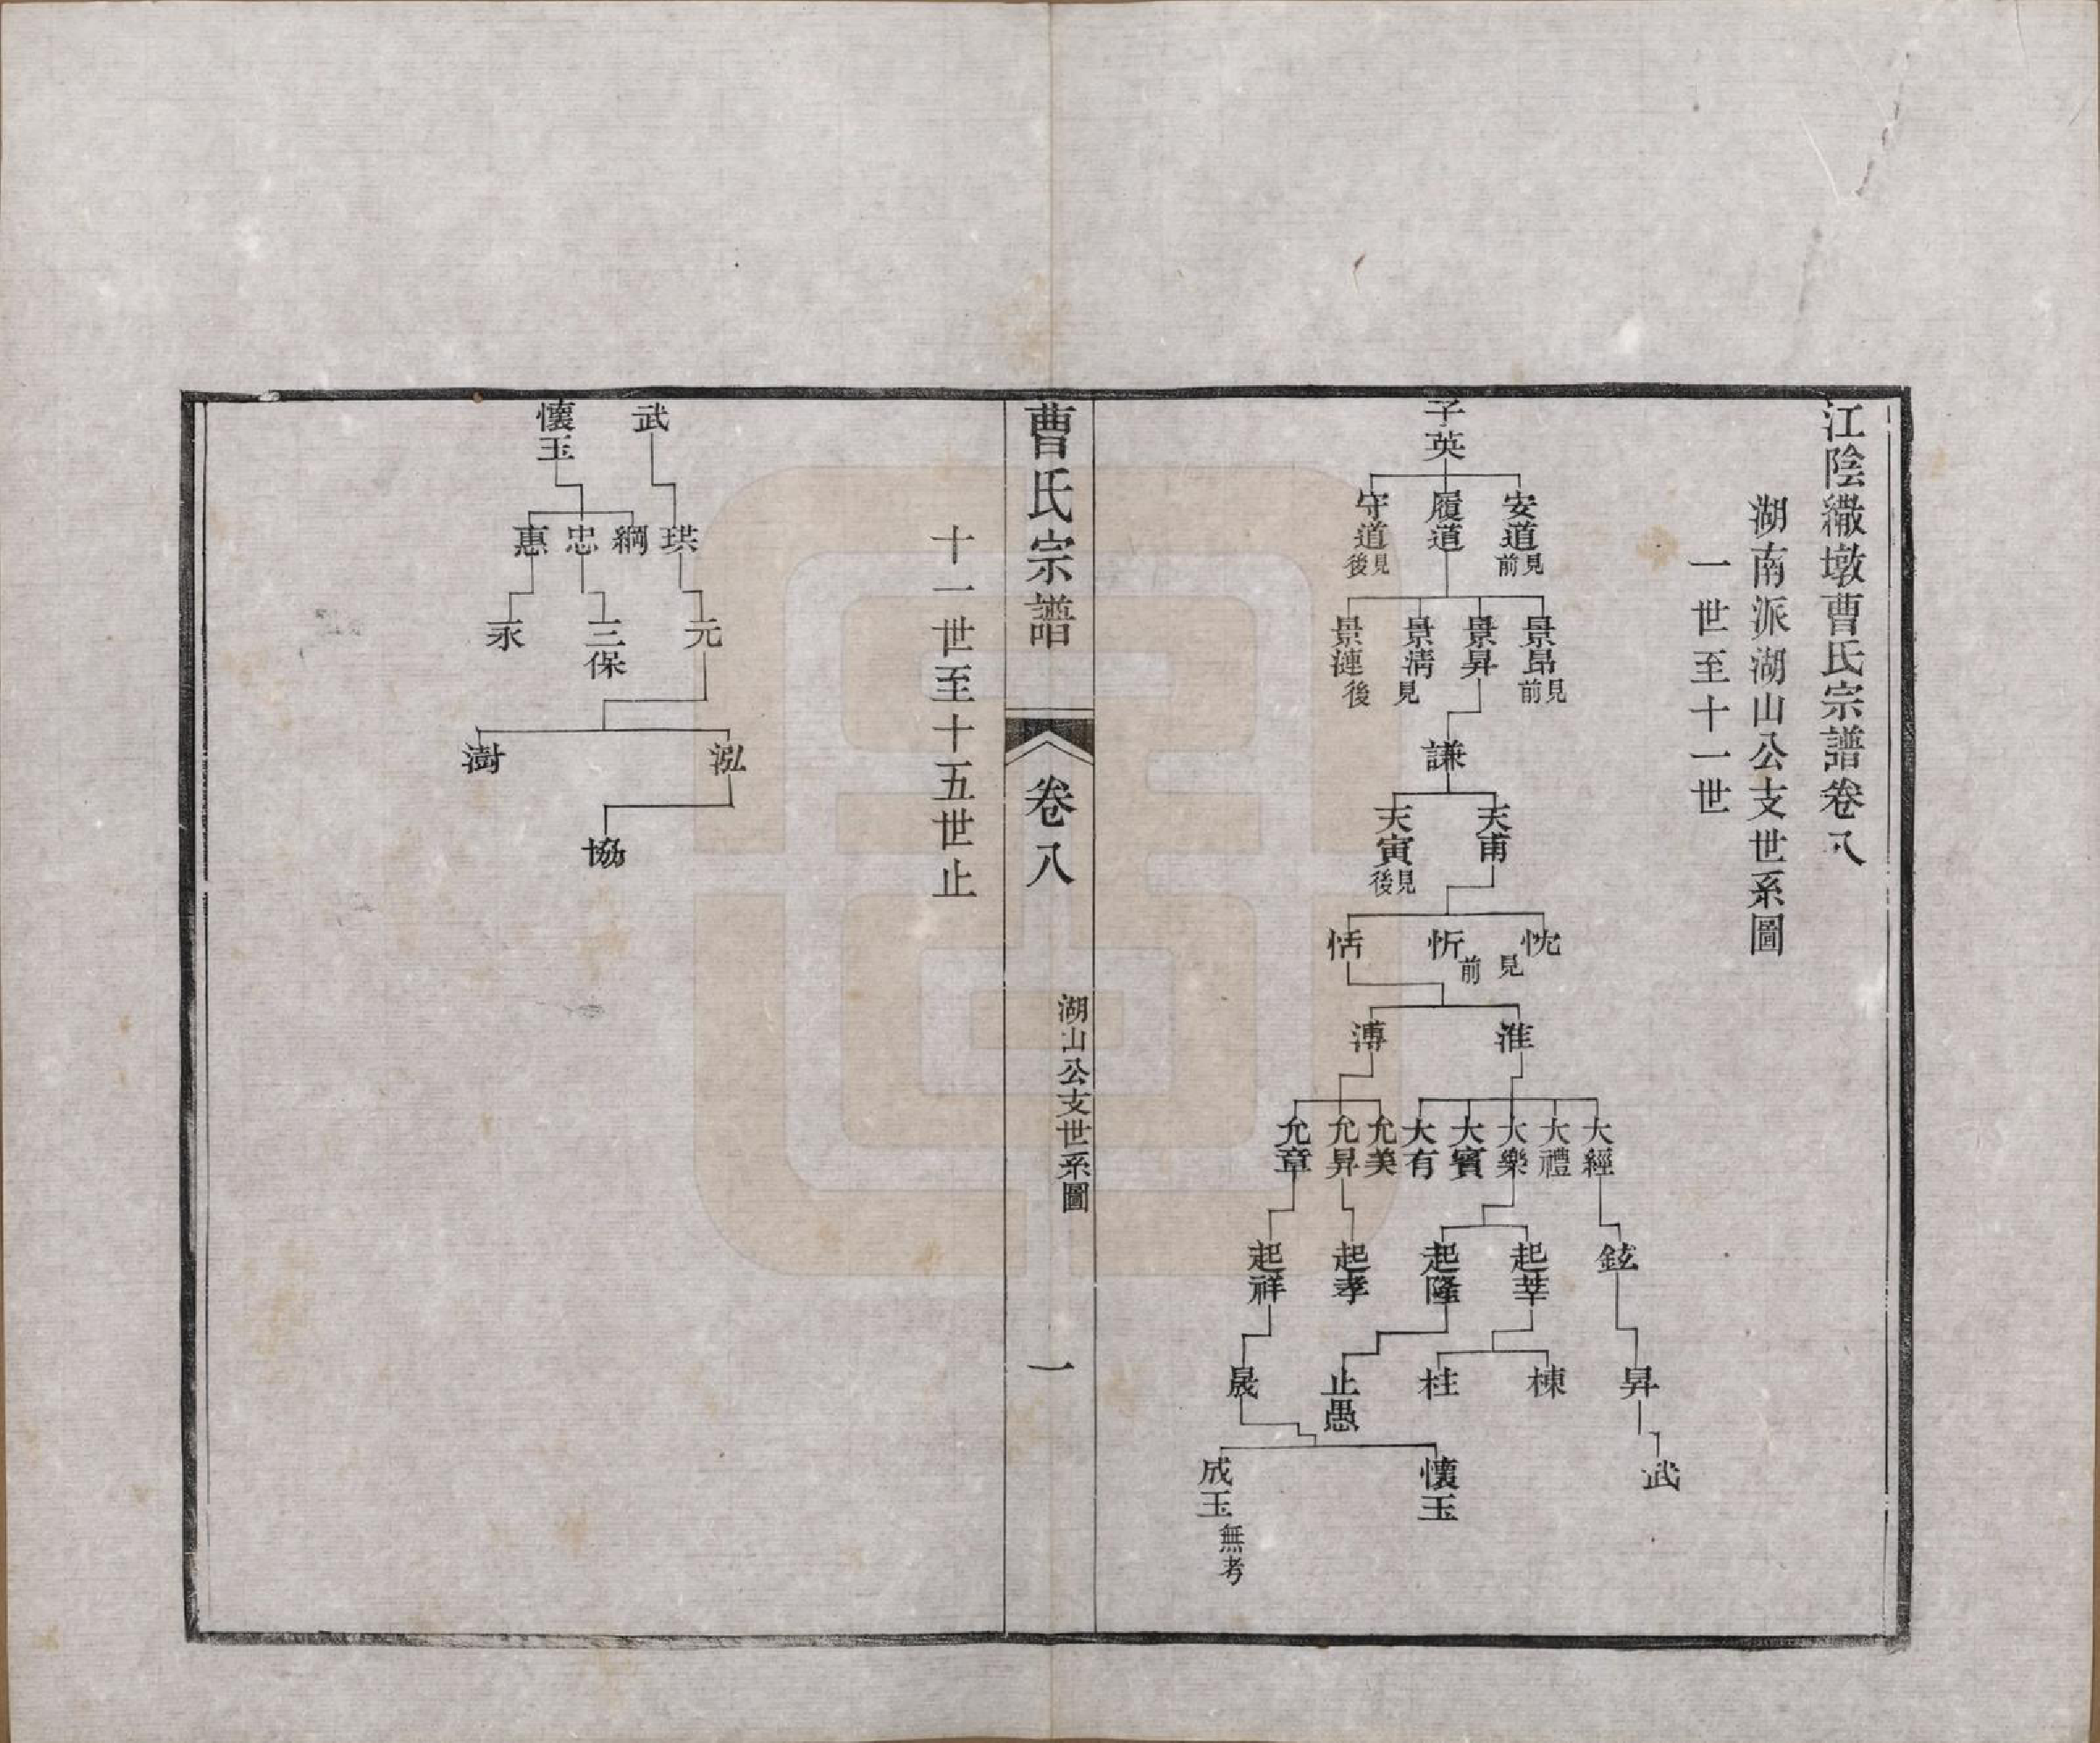 江陰繖墩曹氏宗譜卷八
湖南派湖山公支世系圖
一世至十一世
子英
安道見前
履道
守道見後
景昂見前
景昇
景清
景漣
見後
謙
天甫
天寅見後
忱
忻
見前
恬
淮
溥
大經
大禮
大樂
大賓
大有
允美
允昇
允章
鉉
起莘
起隆
起孝
起祥
昇
棟
柱
止愚
晟
武
懷玉
成玉無考
曹氏宗譜
卷八
湖山公支世系圖
一
十一世至十五世止
武
懷玉
珙
綱
忠
惠
元
三保
永
泓
澍
協